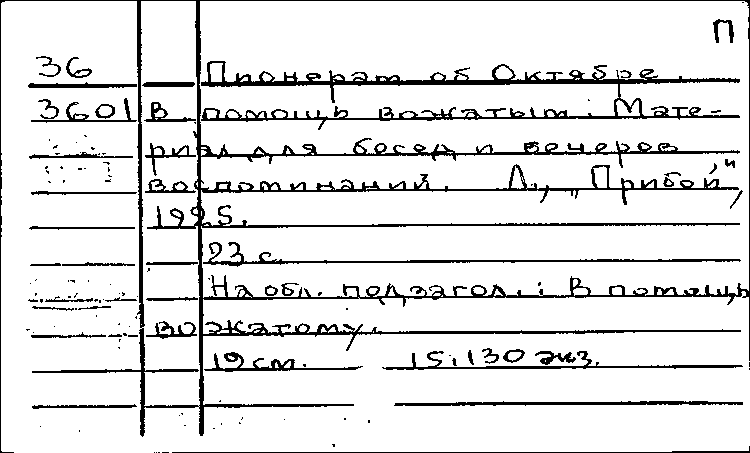 П
36 Пионерам об Октябре.
3601 В помощь вожатым. Мате-
риал для бесед и вечеров
воспоминаний. Л., "Прибой",
1925.
23 с.
На обл. подзагол.: В помощь
вожатому.
19 см. 15.130 экз.